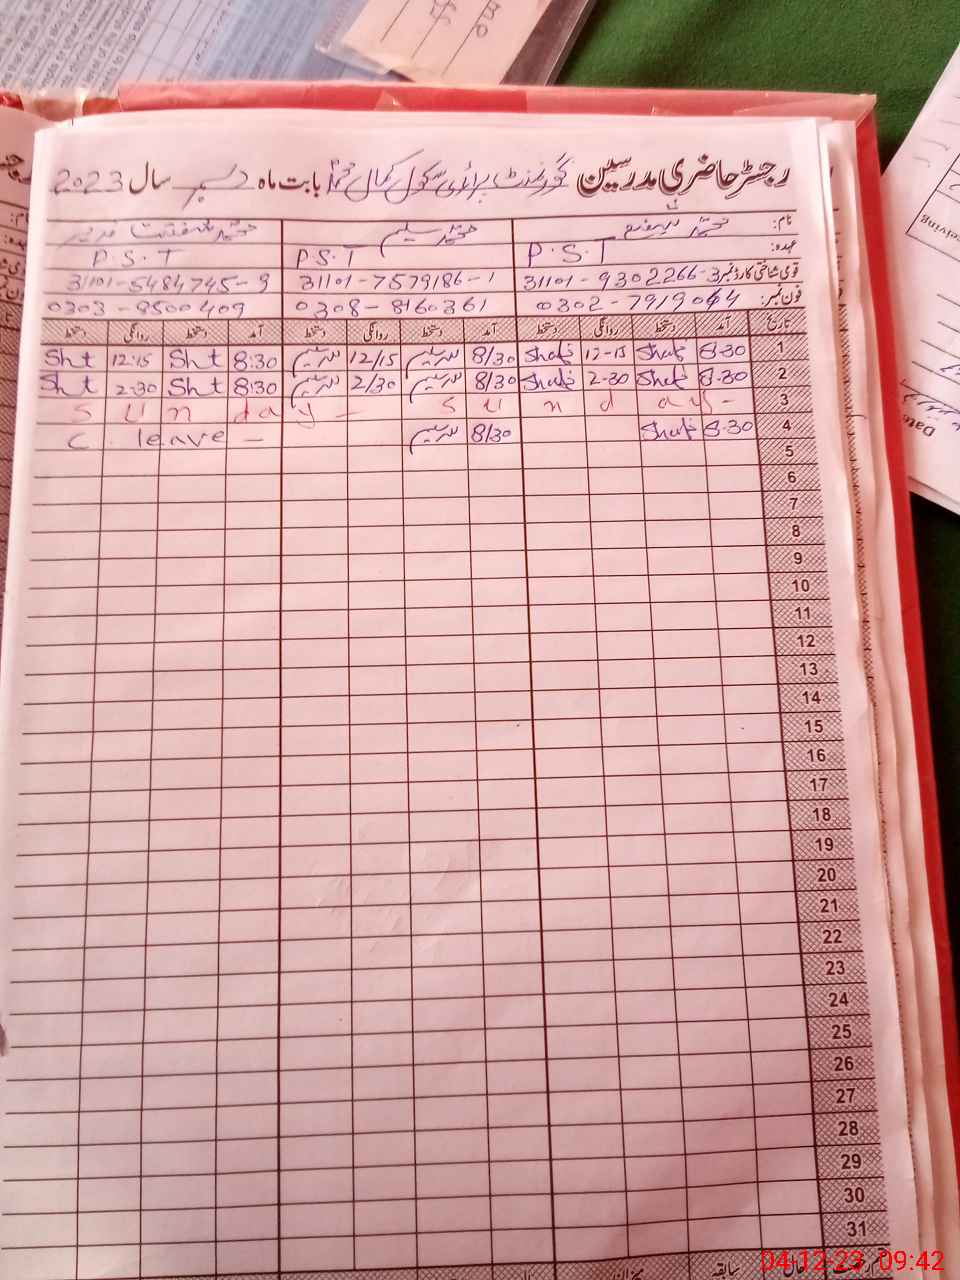 رجسٹر حاضری مدرسین گورنمنٹ پرائمری سکول کمال بابت ماہ دسمبر سال 2023
نام: محمد شفیع محمد سلیم محمد شفقت
عہدہ: P.S.T P.S.T P.S.T
قومی شناختی کارڈ نمبر 31101-9302266-3 31101-7579186-1 31101-5484745-9
فون نمبر: 0302-7919064 0308-8160361 0303-8500409
تاریخ آمد دستخط روانگی دستخط آمد دستخط روانگی دستخط آمد دستخط روانگی دستخط
1 8-30 Shafi 12-15 Shafi 8/30 سلیم 12/15 سلیم 8:30 Sht 12:15 Sht
2 8-30 Shafi 2-30 Shafi 8/30 سلیم 2/30 سلیم 8:30 Sht 2-30 Sht
3 Sunday - Sunday -
4 8-30 Shafi 8/30 سلیم C. leave -
5
6
7
8
9
10
11
12
13
14
15
16
17
18
19
20
21
22
23
24
25
26
27
28
29
30
31
سابقہ
04-12-23 09:42